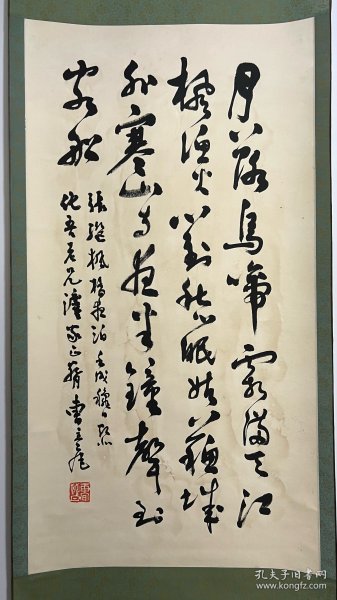 月落烏啼霜滿天江
楓漁火對愁眠姑蘇城
外寒山寺夜半鐘聲到
客船
張繼楓橋夜泊 壬戌
老兄 正 曹立庵
孔夫子旧书网
www.kongfz.com